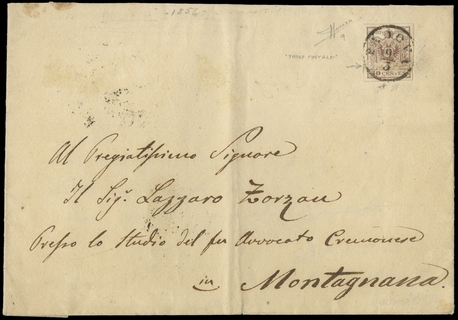 1856
PADOVA
9
3
CENTES
Al Pregiatissimo Signore
Il Sigr. Lazzaro Zorzan
Presso lo Studio del fu Avvocato Cremonese
in
Montagnana.